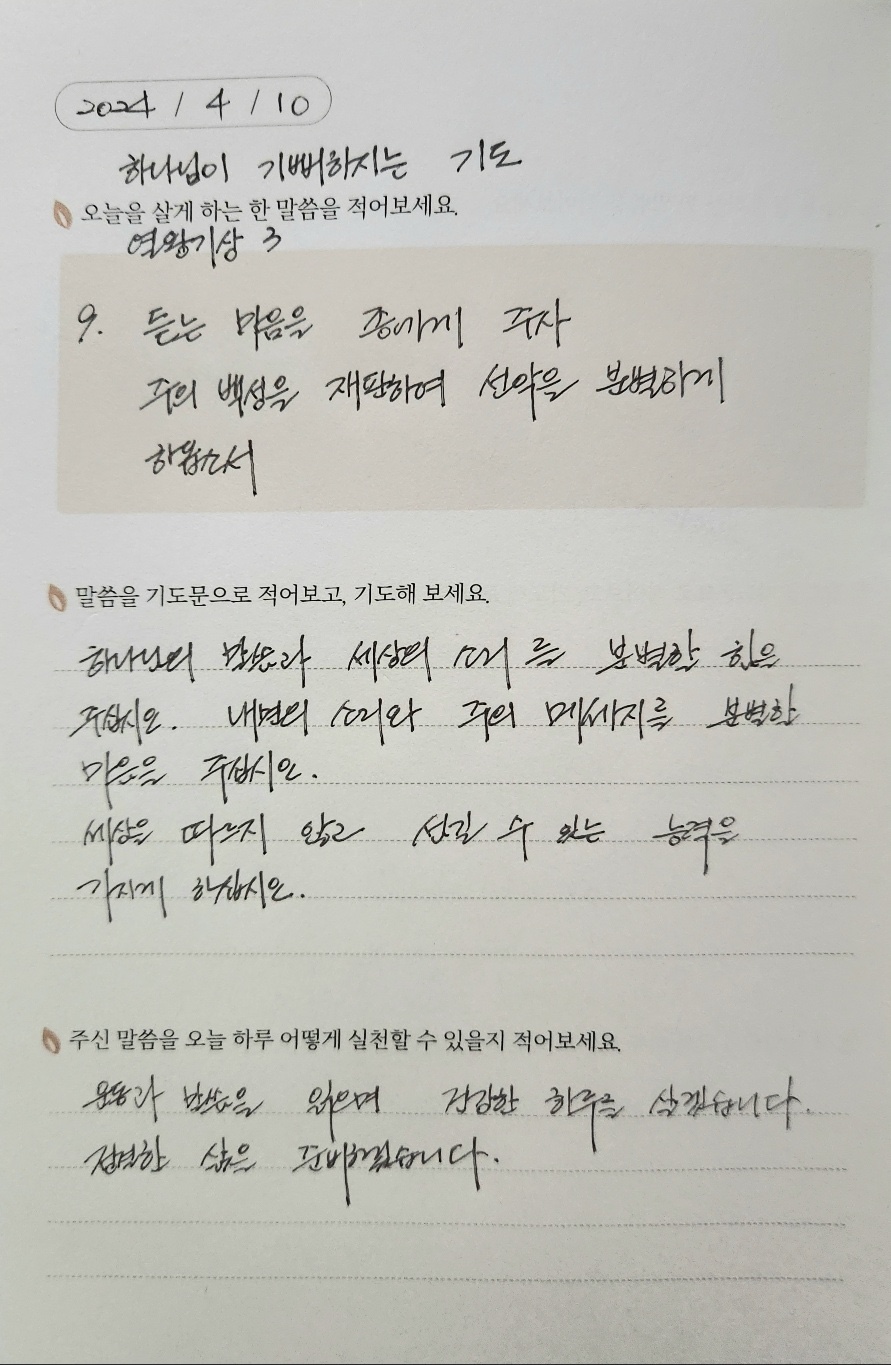 2024 / 4 / 10
하나님이 기뻐하지는 기도
오늘을 살게 하는 한 말씀을 적어보세요.
열왕기상 3
9. 듣는 마음을 종에게 주자
주의 백성을 재판하여 선악을 분별하게
하옵소서
말씀을 기도문으로 적어보고, 기도해 보세요.
하나님의 말씀과 세상의 소리를 분별할 힘을
주십시오. 내면의 소리와 주의 메세지를 분별할
마음을 주십시오.
세상을 따르지 않고 섬길 수 있는 능력을
가지게 하십시오.
주신 말씀을 오늘 하루 어떻게 실천할 수 있을지 적어보세요.
운동과 말씀을 읽으며 건강한 하루를 살겠습니다.
정결한 삶을 준비하겠습니다.